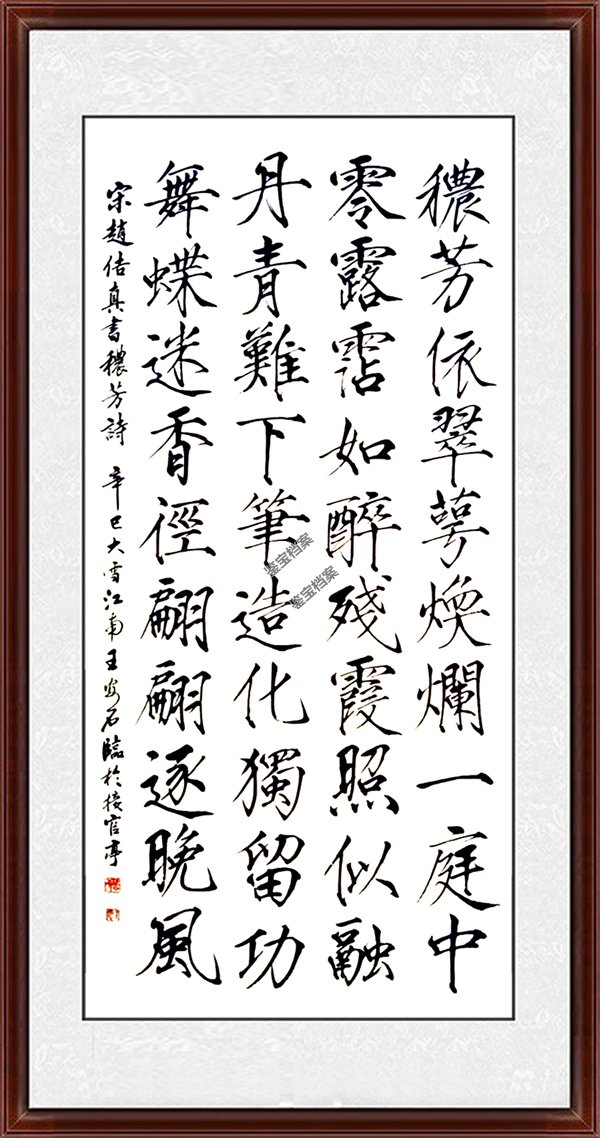 穠芳依翠萼煥爛一庭中
零露霑如醉殘霞照似融
丹青難下筆造化獨留功
舞蝶迷香徑翩翩逐晚風
宋趙佶真書穠芳詩 辛巳大雪江南王石臨於接官亭
鉴宝档案
鉴宝档案